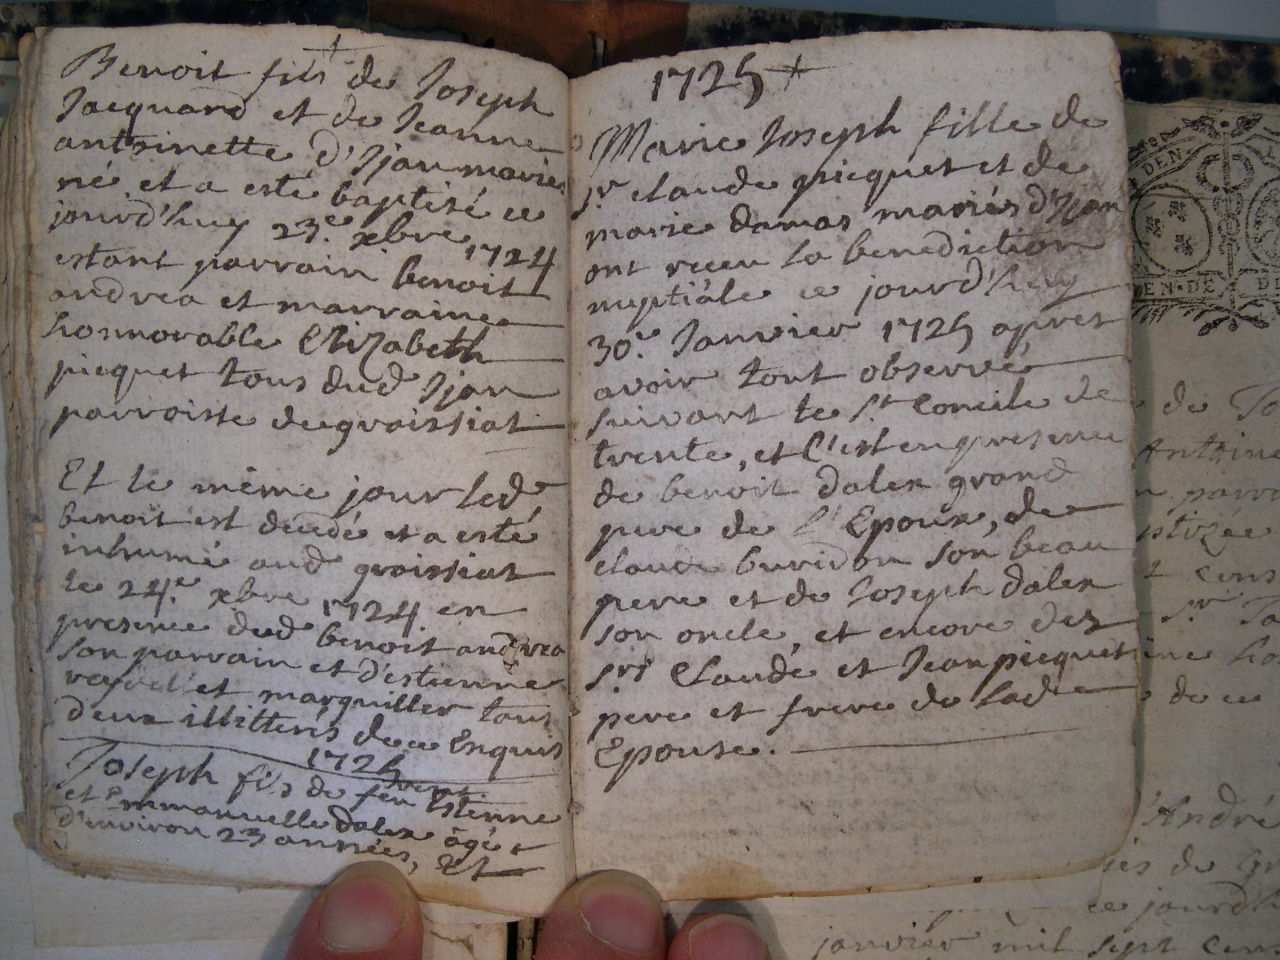 Benoit fils de Joseph
Jacquard et de Jeanne
antoinette d'Ijan mariés
né et a esté baptisé ce
jourd'huy 23e. xbre 1724
estant parrain benoit
andrea et marraine
honnorable Elizabeth
picquet tous dud Ijan
parroisse de groissiat
Et le même jour led
benoit est decedé et a esté
inhumé aud groissiat
le 24e. xbre 1724. en
presence dud benoit andrea
son parrain et d'estienne
et marguiller tous
deux illitterés de ce Enquis
1725
Joseph fils de feu Estienne
et Emmanuelle dalex âgé
d'environ 23 années, Et
1725
Marie Joseph fille de
sr. claude picquet et de
marie damas mariés d'Ijan
ont receu la benediction
nuptiale ce jourd'huy
30e. Janvier 1725 apres
avoir tout observé
suivant le st Concile de
trente, et C'est en presence
de benoit dalex grand
pere de l'Epoux, de
claude buridon son beau
pere et de Joseph dalex
son oncle, et encore des
srs Claude et Jean picquet
pere et frere de lad
Epouse.
DEN
EN-DE
de
Antoine
de ce
André
ce jourd'h
janvier mil sept cen